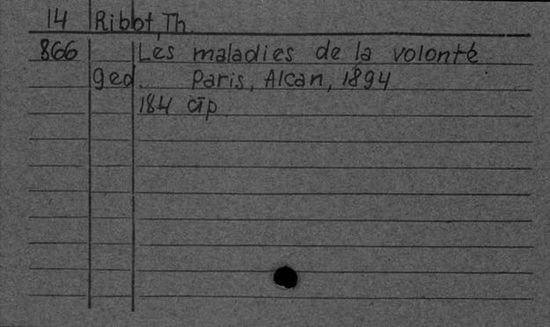 14 Ribot, Th.
866 Les maladies de la volonté
9ed. Paris, Alcan, 1894
184 ctp.